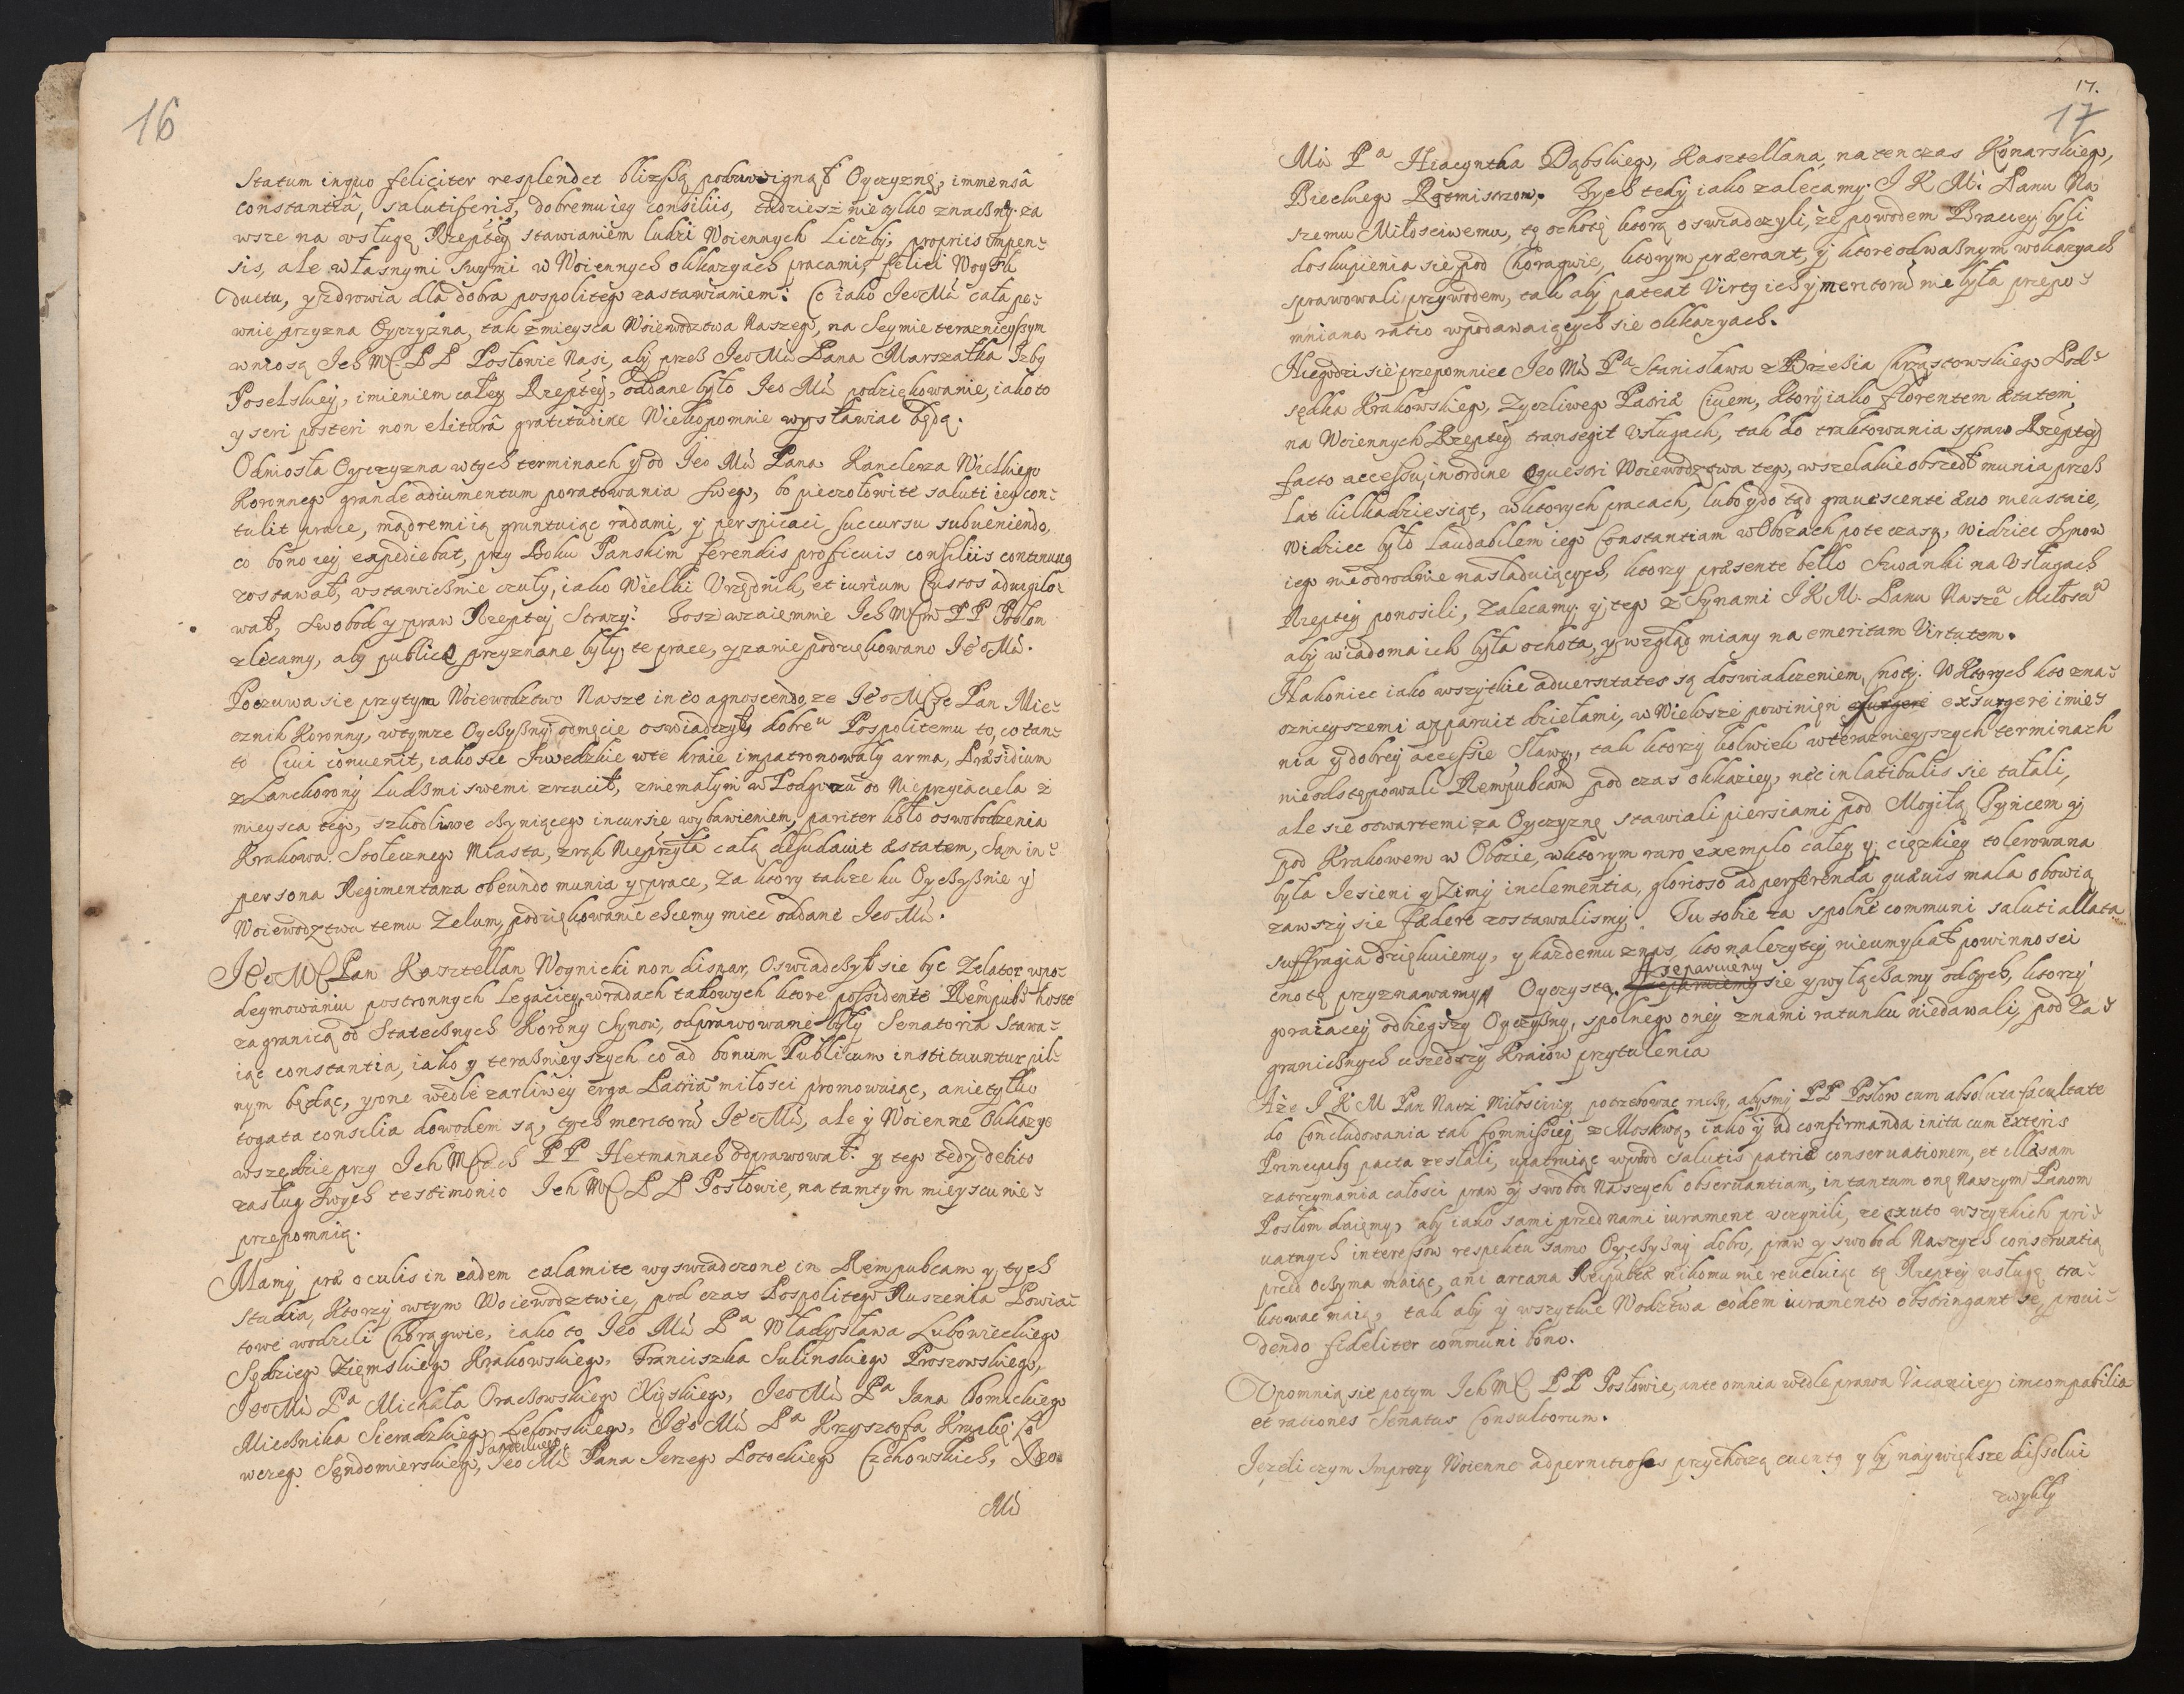 16
Statum inquo feliciter resplendet bliższą podzwignął Oyczyznę, immensâ
constantiâ, salutiferis, dobremu iey consiliis, tudziesz nie tylko znaczną za
wsze na usługę Rzeptey stawianiem ludzi Woiennych liczbą, propriis impen-
sis, ale własnymi swymi w Woiennych okkazyach pracami, felici Woysk
ductu, y zdrowia dla dobra pospolitego zastawianiem: Co iako Jeo Mć cała pe-
wnie przyzna Oyczyzna, tak z mieysca Woiewodztwa Naszego, na Seymie teraznieyszym
wniosą Ich Mć PP Posłowie Nasi, aby przez Jeo Mć Pana Marszałka Izby
Poselskiey, imieniem całey Rzeptey, oddane było Jeo Mć podziękowanie, iako to
y seri posteri non elitura gratitudine Wiekopomnie wysławiać będą.
Odniosła Oyczyzna w tych terminach y od Jeo Mć Pana Kanclerza Wielkiego
Koronnego grande adiumentum poratowania swego, bo pieczołowite saluti iey con-
tulit prace, mądremi ią gruntuiąc radami, y perspicaci succursu subueniendo,
co bono iey expediebat, przy Boku Panskim ferendis proficuis consiliis continuus
zostawał, ustawicznie czuły, iako Wielki Urzędnik, et iurium Custos aduigilo-
wał, swobod y praw Rzeptey Strazy. Tosz wzaiemnie Ich Mćm PP Posłom
zlecamy, aby publice przyznane były te prace, y zanie podziękowano Jeo Mć.
Poczuwa sie przytym Woiewodztwo Nasze in eo agnoscendo, ze Jeo Mć Pan Mie-
cznik Koronny, w tymze Oyczyzny odmęcie oswiadczył dobreu Pospolitemu to, co tan-
to Ciui conuenit, iako sie Szwedzkie w te kraie impatronowały arma, Præsidium
z Lanckorony ludzmi swemi zrzucił, z niemałym w Podgorzu od Nieprzyiaciela z
mieysca tego, szkodliwe czyniącego incursie wybawieniem, pariter koło oswobodzenia
Krakowa Stołecznego Miasta, z rąk Nieprzyła całą desudauit æstatem, sam in-
persona Regimentarza obeundo munia y prace, za ktory takze ku Oyczyznie y
Woiewodztwu temu Zelum, podziękowanie chcemy miec oddane Jeo Mć.
Jeo Mć Pan Kasztellan Woynicki non dispar, Oswiadczył sie byc Zelator w po-
deymowaniu postronnych Legaciey, w radach takowych ktore possidente Rempub. hoste
za granicą od Statecznych Korony Synow, odprawowane były Senatoria stawa-
iąc constantia, iako y teraznieyszych co ad bonum Publicum instituuntur pil-
nym będąc, y one wedle zarliwey erga Patriã miłosci promowuiąc, a nietylko
togata consilia dowodem są, tych meritorũ Jeo Mć, ale y Woienne Okkazye
wszędzie przy Ich Mćiach PP Hetmanach odprawował: y tego tedy debito
zasług swych testimonio Ich Mć PP Posłowie, na tamtym mieyscu nie-
przepomnią.
Mamy præ oculis in eadem calamite wyswiadczone in Rempubcam y tych
studia, Ktorzy w tym Woiewodztwie, pod czas Pospolitego Ruszenia Powia-
towe wodzili Chorągwie, iako to Jeo Mć Pa Władysława Lubowieckiego
Sędziego Ziemskiego Krakowskiego, Franciszka Sulinskiego Proszowskiego,
Jeo Mć Pa Michała Oraczowskiego Xięskiego, Jeo Mć Pa Jana Płomickiego
Miecznika Sieradzkiego Lelowskiego, Jeo Mć Pa Krzysztofa Krupkę Ło
wczego Sendomierskiego, Jeo Mć Pana Jerzego Potockiego Czchowskich, Jeo
Mć
17.
17
Mć Pa Hiacyntha Dąbskiego, Kasztellana na ten czas Konarskiego,
Bieckiego Rotmistrzow. Tych tedy iako zalecamy J K Mć. Panu Na
szemu Miłosciwemu, tę ochotę ktorą oswiadczyli, że powodem Braciey byli
do skupienia sie pod Chorągwie, ktorym præerant, y ktore odwaznym w okazyach
sprawowali przywodem, tak aby pateat Virtus ich y meritorũ nie była przepo-
mniana ratio w podawaiących sie okkazyach.
Niegodzi sie przepomniec Jeo Mć Pa Stanisława z Brzezia Chrząstowskiego Pod-
sędka Krakowskiego, Zyczliwego Patriæ Ciuem, Ktory iako florentem ætatem,
na Woiennych Rzeptey transegit Usługach, tak do traktowania spraw Rzeptey
facto accessu, in ordine Equestri Woiewodztwa tego, wszelakie obszedł munia przez
lat kilkadziesiąt, w ktorych pracach, lubo y do tąd grauescenti æuo nieustaie,
Widziec było laudabilem iego Constantiam w Obozach pote czasy, Widziec Synow
iego nieodrodnie nasladuiących, ktorzy præsente bello Szwanki na Usługach
Rzeptey ponosili, Zalecamy y tego z Synami J K M. Panu Naszeu Miłosciu
aby wiadoma ich była ochota, y wzgląd miany na emeritam Virtutem.
Nakoniec iako wszytkie aduersitates są doswiadczeniem cnoty. W Ktorych kto zna-
cznieyszemi apparuit dziełami, w Wieksze powinien exurgere exsurgere imie-
nia y dobrey accessie Sławy, tak ktorzy kolwiek w teraznieyszych terminach
nie odstępowali Rempubcam pod czas okkaziey, nec in latibulis sie tułali,
ale sie otwartemi za Oyczyznę stawiali piersiami pod Mogiłą Tyncem y
pod Krakowem w Obozie, w ktorym raro exemplo całey y cięzkiey tolerowana
była Jesieni y Zimy inclementia, glorioso ad perferenda quæuis mala obowią
zawszy sie fædere zostawalismy. Tu sobie za spolne communi saluti allata
suffragia dziękuiemy, y kazdemu z nas, kto nalezytey nieumykał powinnosci
cnotę przyznawamy Oyczystą. A separuiemy sie y wyłączamy od tych, ktorzy
goraiącey odbiegszy Oyczyzny, spolnego oney z nami ratunku niedawali, pod Za-
granicznych uszedszy Kraiow przytulenia
Aże J K M Pan Nasz Miłosciwy potrzebowac raczy, abysmy PP Posłow cum absoluta facultate
do Concludowania tak Commissiey z Moskwą, iako y ad confirmanda inita cum exteris
Principibus pacta zesłali, upatruiąc wprzod salutis patriæ conseruationem, et illæsam
zatrzymania całosci praw y swobod Naszych obseruantiam, in tantum onę Naszym Panom
Posłom daiemy, aby iako sami przed nami iurament uczynili, ze exuto wszytkich pri-
uatnych interessow respektu samo Oyczyzny dobro, praw y swobod Naszych conseruatią
przed oczyma maiąc, ani arcana Reipubcæ nikomu nie reueluiąc tę Rzeptey usługę tra-
ktowac maią, tak aby y wszytkie Wodztwa eodem iuramento obstringant se, proui-
dendo fideliter communi bono.
Upomnią sie potym Ich Mć PP Posłowie, ante omnia wedle prawa Vacanciey imcompabilia
et rationes Senatus Consultorum.
Jezeli czym Imprezy Woienne ad perniciosos przychodzą euentus y by naywiększe dissolui
zwykły